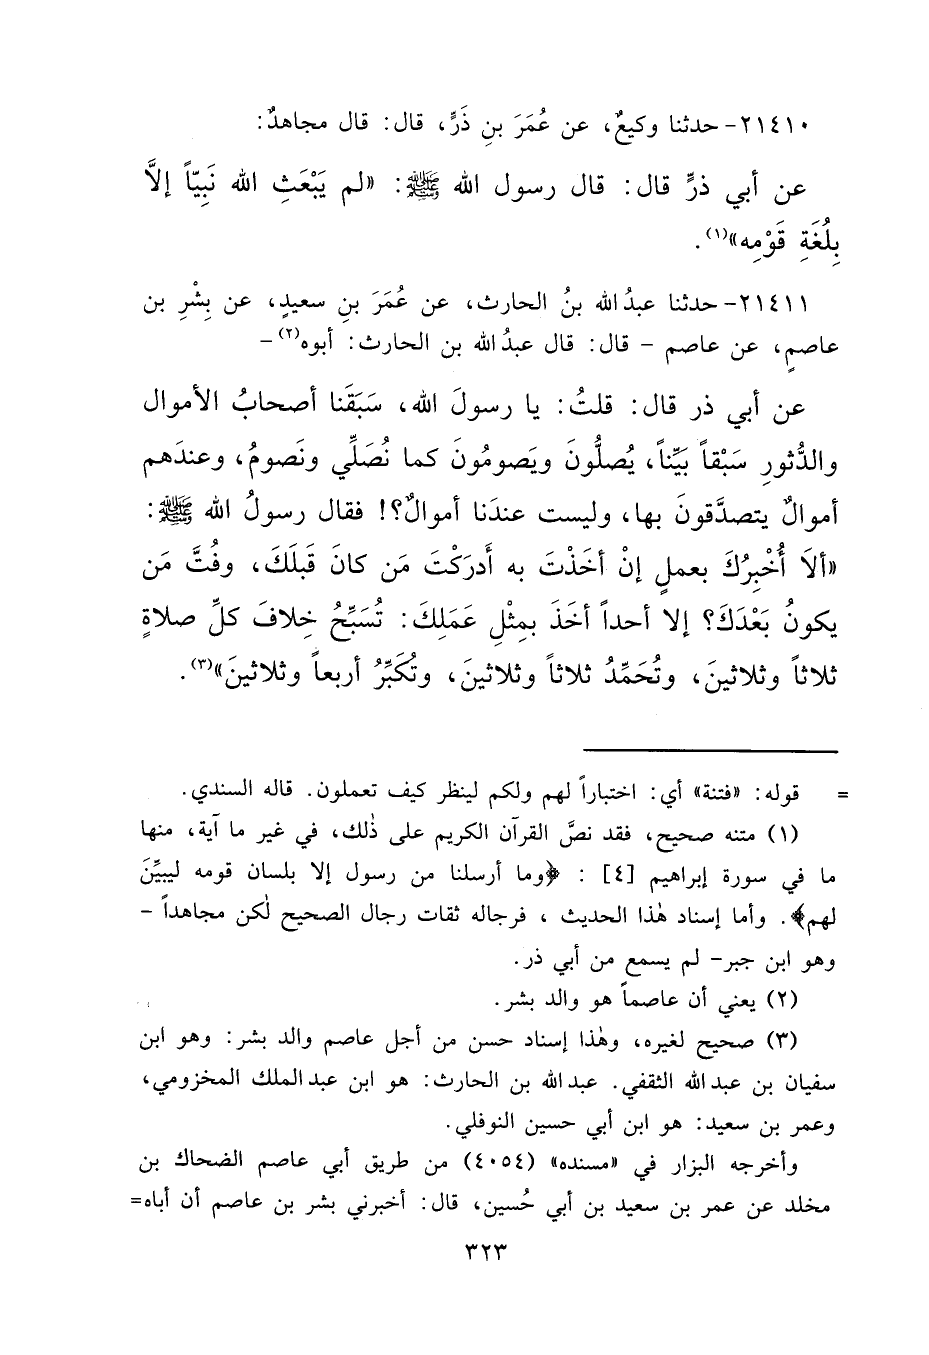 ٢١٤١٠- حدثنا وكيعٌ، عن عُمَرَ بنِ ذَرٍّ، قال: قال مجاهدٌ:
عن أبي ذرٍّ قال: قال رسول الله ﷺ: «لم يَبْعَثِ الله نَبِيّاً إلاَّ
بِلُغَةِ قَوْمِه»(١).
٢١٤١١- حدثنا عبدُ الله بنُ الحارث، عن عُمَرَ بنِ سعيدٍ، عن بِشْرِ بن
عاصمٍ، عن عاصم – قال: قال عبدُ الله بن الحارث: أبوه(٢) –
عن أبي ذر قال: قلتُ: يا رسولَ الله، سَبَقَنا أصحابُ الأموال
والدُّثورِ سَبْقاً بَيِّناً، يُصلُّونَ ويَصومُونَ كما نُصَلِّي ونَصومُ، وعندَهم
أموالٌ يتصدَّقونَ بها، وليست عندَنا أموالٌ؟! فقال رسولُ الله ﷺ:
«ألاَ أُخْبِرُكَ بعملٍ إنْ أخَذْتَ به أَدرَكْتَ مَن كانَ قَبلَكَ، وفُتَّ مَن
يكونُ بَعْدَكَ؟ إلا أحداً أخَذَ بمِثْلِ عَمَلِكَ: تُسَبِّحُ خِلافَ كلِّ صلاةٍ
ثلاثاً وثلاثينَ، وتُحَمِّدُ ثلاثاً وثلاثينَ، وتُكَبِّرُ أربعاً وثلاثينَ»(٣).
= قوله: «فتنة» أي: اختباراً لهم ولكم لينظر كيف تعملون. قاله السندي.
(١) متنه صحيح، فقد نصَّ القرآن الكريم على ذٰلك، في غير ما آية، منها
ما في سورة إبراهيم [٤] : ﴿وما أرسلنا من رسول إلا بلسان قومه ليبيِّنَ
لهم﴾. وأما إسناد هٰذا الحديث ، فرجاله ثقات رجال الصحيح لٰكن مجاهداً –
وهو ابن جبر– لم يسمع من أبي ذر.
(٢) يعني أن عاصماً هو والد بشر.
(٣) صحيح لغيره، وهٰذا إسناد حسن من أجل عاصم والد بشر: وهو ابن
سفيان بن عبد الله الثقفي. عبد الله بن الحارث: هو ابن عبد الملك المخزومي،
وعمر بن سعيد: هو ابن أبي حسين النوفلي.
وأخرجه البزار في «مسنده» (٤٠٥٤) من طريق أبي عاصم الضحاك بن
مخلد عن عمر بن سعيد بن أبي حُسين، قال: أخبرني بشر بن عاصم أن أباه=
٣٢٣